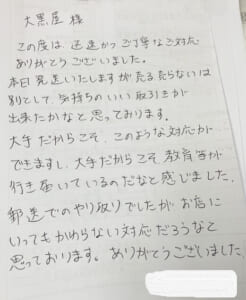 大黒屋 様
この度は、迅速かつご丁寧なご対応
ありがとうございました。
本日発送いたしますが売る、売らないは
別として、気持ちのいい取引きが
出来たかなと思っております。
大手だからこそ、このような対応が
できますし、大手だからこそ教育等が
行き届いているのだなと感じました。
郵送でのやり取りでしたが、お店に
いってもかわらない対応だろうなと
思っております。ありがとうございました